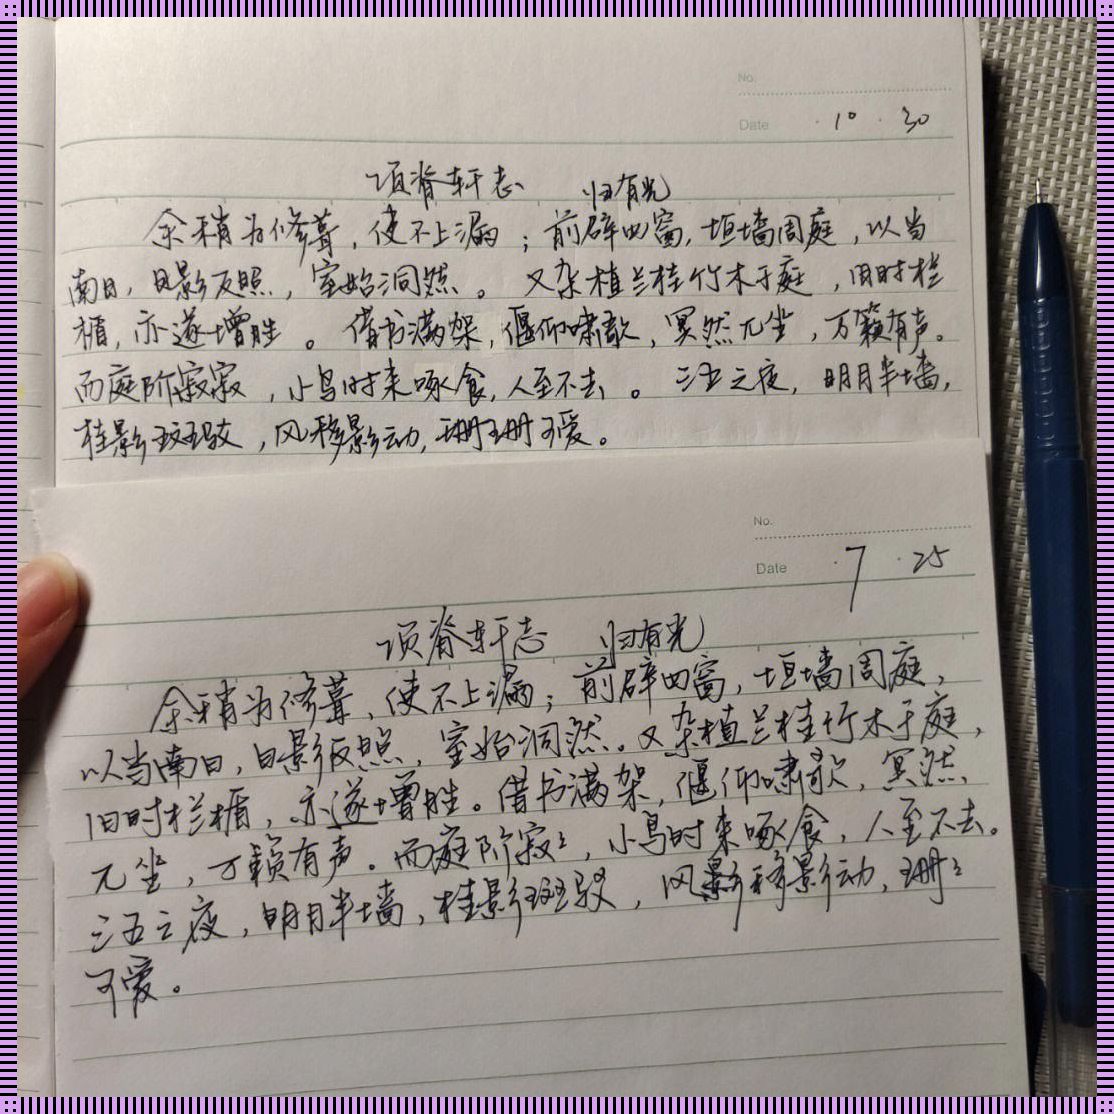 No.
Date · 10 · 30
项脊轩志 归有光
余稍为修葺，使不上漏；前辟四窗，垣墙周庭，以当
南日，日影反照，室始洞然。又杂植兰桂竹木于庭，旧时栏
楯，亦遂增胜。借书满架，偃仰啸歌，冥然兀坐，万籁有声。
而庭阶寂寂，小鸟时来啄食，人至不去。三五之夜，明月半墙，
桂影斑驳，风移影动，珊珊可爱。
No.
Date · 7 · 25
项脊轩志 归有光
余稍为修葺，使不上漏；前辟四窗，垣墙周庭，
以当南日，日影反照，室始洞然。又杂植兰桂竹木于庭，
旧时栏楯，亦遂增胜。借书满架，偃仰啸歌，冥然
兀坐，万籁有声。而庭阶寂〻，小鸟时来啄食，人至不去。
三五之夜，明月半墙，桂影斑驳，风影移影动，珊〻
可爱。